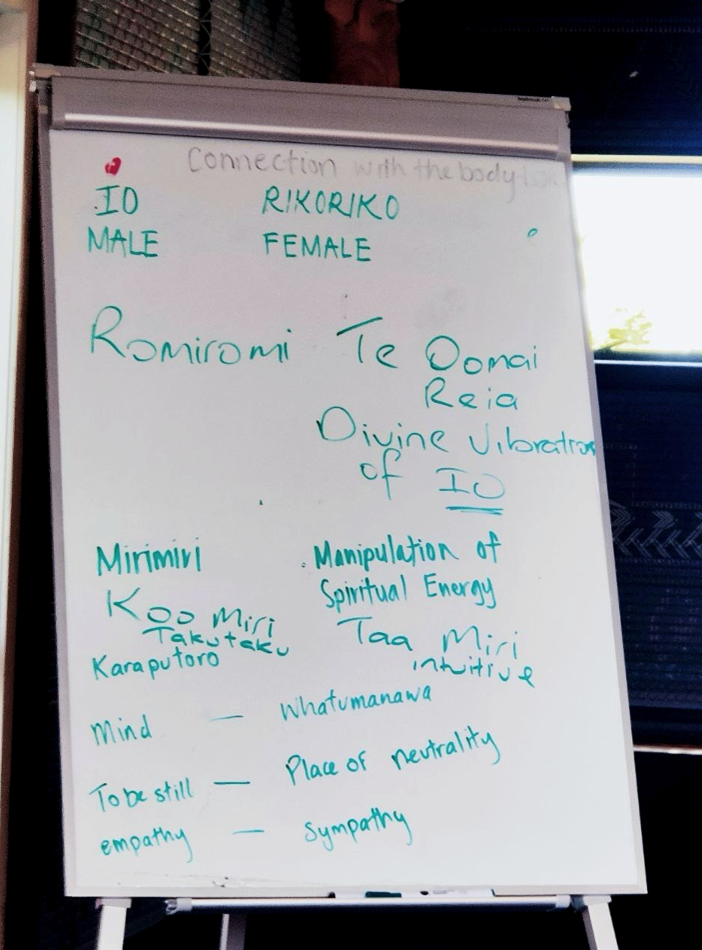 Connection with the body
IO RIKORIKO
MALE FEMALE
Romiromi Te Oomai
Reia
Divine Vibration
of IO
Mirimiri Manipulation of
Spiritual Energy
Koo Miri Taa Miri
Takutaku intuitive
Karaputoro
Mind — Whatumanawa
To be still — Place of neutrality
empathy — Sympathy